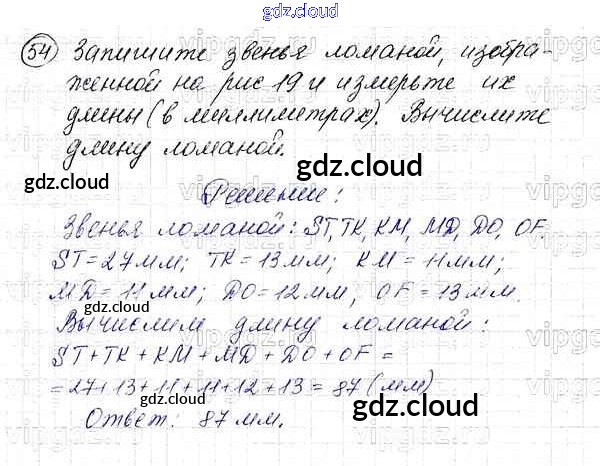 gdz.cloud
54 Запишите звенья ломаной, изобра-
женной на рис 19 и измерьте их
длины (в миллиметрах). Вычислите
длину ломаной.
gdz.cloud
gdz.cloud
Решение:
Звенья ломаной: ST, TK, KM, MD, DO, OF.
ST=27мм; TK=13мм; KM=11мм;
MD=11мм; DO=12мм, OF=13мм.
gdz.cloud
gdz.cloud
Вычислим длину ломаной:
ST+TK+KM+MD+DO+OF=
=27+13+11+11+12+13=87(мм)
gdz.cloud
gdz.cloud
Ответ: 87мм.